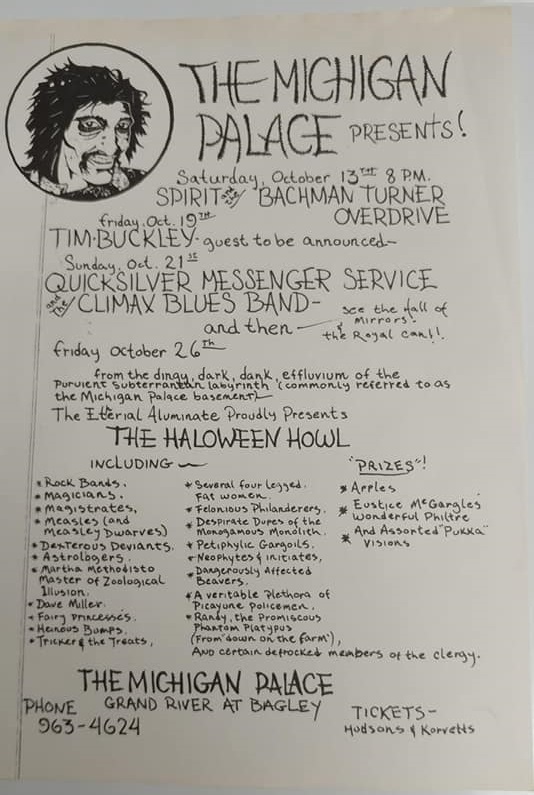 THE MICHIGAN
PALACE PRESENTS!
Saturday, October 13TH 8 P.M.
SPIRIT and BACHMAN TURNER
OVERDRIVE
friday, Oct. 19TH
TIM·BUCKLEY- guest to be announced~
Sunday, Oct. 21ST
QUICKSILVER MESSENGER SERVICE
and the CLIMAX BLUES BAND-
see the Hall of
Mirrors!
and then
& the Royal Can!!
friday October 26Th
from the dingy, dark, dank, effluvium of the
Purvient subterrantan labyrinth (commonly referred to as
the Michigan Palace basement)
The Eterial Aluminate Proudly Presents
THE HALOWEEN HOWL
INCLUDING ~
* Rock Bands.
* Magicians.
* Magistrates,
* Measles (and
Measley Dwarves)
* Dexterous Deviants.
* Astrologers.
* Martha Methodisto
Master of Zoological
Illusion.
* Dave Miller.
* Fairy Princesses.
* Heinous Bumps.
* Tricker & the Treats,
* Several four legged.
Fat women.
* Felonious Philanderers.
* Despirate Dupes of the
Monogamous Monolith.
* Petiphylic Gargoils.
* Neophytes & initiates,
* Dangerously Affected
Beavers.
* A veritable Plethora of
Picayune Policemen.
* Randy, the Promiscous
Phantom Platypus
(From down on the farm'),
And certain defrocked members of the clergy.
"PRIZES"!
* Apples
* Eustice McGargles
Wonderful Philtre
* And Assorted "Pukka"
Visions
THE MICHIGAN PALACE
PHONE GRAND RIVER AT BAGLEY
963-4624
TICKETS-
Hudsons & Korvetts